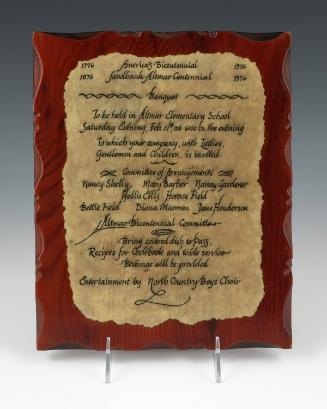 1776 America's Bicentennial 1976
1876 Sandbank-Altmar Centennial 1976
Banquet
To be held in Altmar Elementary School
Saturday Evening, Feb 21st at 6:00 in the evening
To which your company, with Ladies,
Gentlemen and Children, is invited.
Committee of Arrangements
Nancy Shelly Mary Barber Nancy Gardener
Hollis Ellis Horace Field
Bettie Field Diana Marmon Jane Henderson
Altmar Bicentennial Committee
Bring covered dish to Pass,
Recipes for Cookbook and table service
Beverage will be provided.
Entertainment by North Country Boys Choir